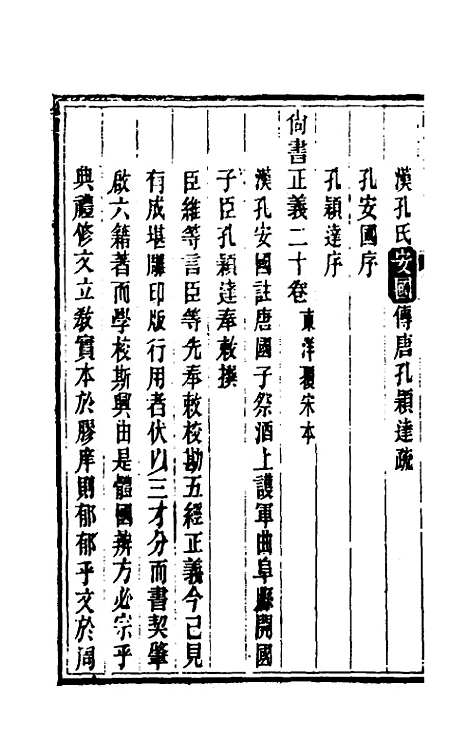 漢孔氏安國傳唐孔穎達疏
孔安國序
孔穎達序
尙書正義二十卷東洋覆宋本
漢孔安國註唐國子祭酒上護軍曲阜縣開國
子臣孔穎達奉敕撰
臣維等言臣等先奉敕校勘五經正義今已見
有成堪雕印版行用者伏以三才分而書契肇
啟六籍著而學校斯興由是體國辨方必宗乎
典禮修文立敎實本於膠庠則郁郁乎文於周